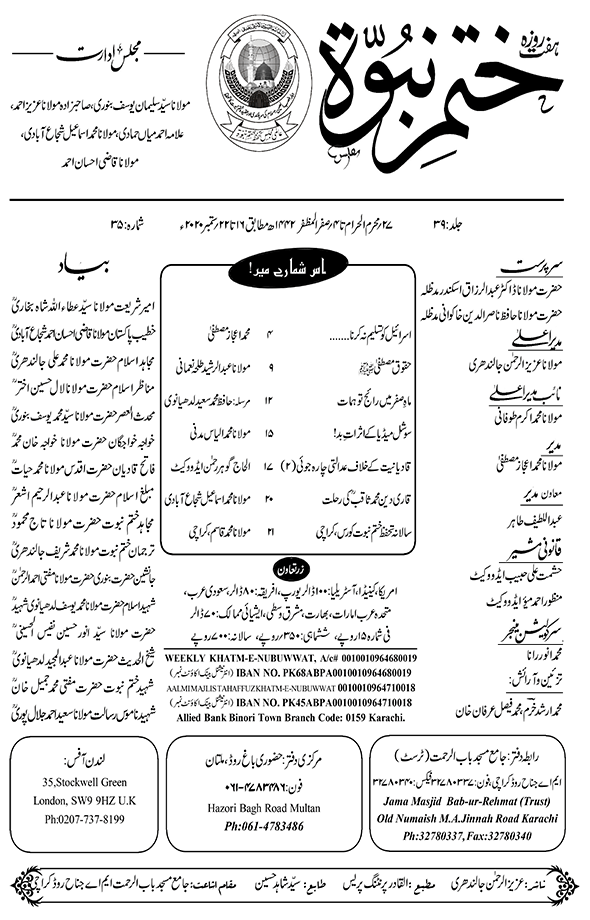 ہفت روزہ
ختمِ نبوّۃ
مجلس ادارت
مولانا سید سلیمان یوسف بنوری، صاحبزادہ مولانا عزیز احمد،
علامہ احمد میاں حمادی، مولانا محمد اسماعیل شجاع آبادی،
مولانا قاضی احسان احمد
جلد: ۳۹
۲۷؍محرم الحرام تا ۴؍صفر المظفر ۱۴۴۲ھ مطابق ۱۶ تا ۲۲؍ستمبر ۲۰۲۰ء
شمارہ: ۳۵
سرپرست
حضرت مولانا ڈاکٹر عبدالرزاق اسکندر مدظلہ
حضرت مولانا حافظ ناصر الدین خاکوانی مدظلہ
مدیر اعلیٰ
مولانا عزیز الرحمٰن جالندھری
نائب مدیر اعلیٰ
مولانا محمد اکرم طوفانی
مدیر
مولانا محمد اعجاز مصطفیٰ
معاون مدیر
عبداللطیف طاہر
قانونی مشیر
حشمت علی حبیب ایڈووکیٹ
منظور احمد میؤ ایڈووکیٹ
سرکولیشن منیجر
محمد انور رانا
تزئین و آرائش:
محمد ارشد خرم، محمد فیصل عرفان خان
اس شمارے میں!
اسرائیل کو تسلیم نہ کرنا....... ۴ محمد اعجاز مصطفیٰ
حقوق مصطفیٰ ﷺ ۹ مولانا عبدالرشید طلحہ نعمانی
ماہِ صفر میں رائج توہمات ۱۲ مرسلہ: حافظ محمد سعید لدھیانوی
سوشل میڈیا کے اثراتِ بد! ۱۵ مولانا محمد الیاس مدنی
قادیانیت کے خلاف عدالتی چارہ جوئی (۲) ۱۷ الحاج گوہر حسن ایڈووکیٹ
قاری دین محمد ثاقبؒ کی رحلت ۲۰ مولانا محمد اسماعیل شجاع آبادی
سالانہ تحفظ ختم نبوت کورس، کراچی ۲۱ مولانا محمد قاسم، کراچی
زرتعاون
امریکا، کینیڈا، آسٹریلیا: ۱۰۰ ڈالر یورپ، افریقہ: ۸۰ ڈالر، سعودی عرب،
متحدہ عرب امارات، بھارت، مشرق وسطیٰ، ایشیائی ممالک: ۷۰ ڈالر
فی شمارہ ۱۵ روپے، ششماہی: ۳۵۰ روپے، سالانہ: ۷۰۰ روپے
WEEKLY KHATM-E-NUBUWWAT, A/c# 0010010964680019
IBAN NO. PK68ABPA0010010964680019 (انٹرنیشنل بینک اکاؤنٹ نمبر)
AALMIMAJLISTAHAFFUZKHATM-E-NUBUWWAT 0010010964710018
IBAN NO. PK45ABPA0010010964710018 (انٹرنیشنل بینک اکاؤنٹ نمبر)
Allied Bank Binori Town Branch Code: 0159 Karachi.
بیاد
امیر شریعت مولانا سید عطاء اللہ شاہ بخاریؒ
خطیب پاکستان مولانا قاضی احسان احمد شجاع آبادیؒ
مجاہد اسلام حضرت مولانا محمد علی جالندھریؒ
مناظر اسلام حضرت مولانا لال حسین اخترؒ
محدث العصر حضرت مولانا سید محمد یوسف بنوریؒ
خواجہ خواجگان حضرت مولانا خواجہ خان محمدؒ
فاتح قادیان حضرت اقدس مولانا محمد حیاتؒ
مبلغ اسلام حضرت مولانا عبدالرحیم اشعرؒ
مجاہد ختم نبوت حضرت مولانا تاج محمودؒ
ترجمان ختم نبوت حضرت مولانا محمد شریف جالندھریؒ
جانشین حضرت بنوری حضرت مولانا مفتی احمد الرحمٰنؒ
شہید اسلام حضرت مولانا محمد یوسف لدھیانوی شہیدؒ
حضرت مولانا سید انور حسین نفیس الحسینیؒ
شیخ الحدیث حضرت مولانا عبدالمجید لدھیانویؒ
شہید ختم نبوت حضرت مفتی محمد جمیل خانؒ
شہید ناموس رسالت مولانا سعید احمد جلال پوریؒ
رابطہ دفتر: جامع مسجد باب الرحمت (ٹرسٹ)
ایم اے جناح روڈ کراچی، فون: ۳۲۷۸۰۳۳۷، فیکس: ۳۲۷۸۰۳۴۰
Jama Masjid Bab-ur-Rehmat (Trust)
Old Numaish M.A.Jinnah Road Karachi
Ph:32780337, Fax:32780340
مرکزی دفتر: حضوری باغ روڈ، ملتان
فون: ۰۶۱-۴۷۸۳۴۸۶
Hazori Bagh Road Multan
Ph:061-4783486
لندن آفس:
35,Stockwell Green
London, SW9 9HZ U.K
Ph:0207-737-8199
ناشر: عزیز الرحمٰن جالندھری مطبع: القادر پرنٹنگ پریس طابع: سید شاہد حسین مقام اشاعت: جامع مسجد باب الرحمت ایم اے جناح روڈ کراچی